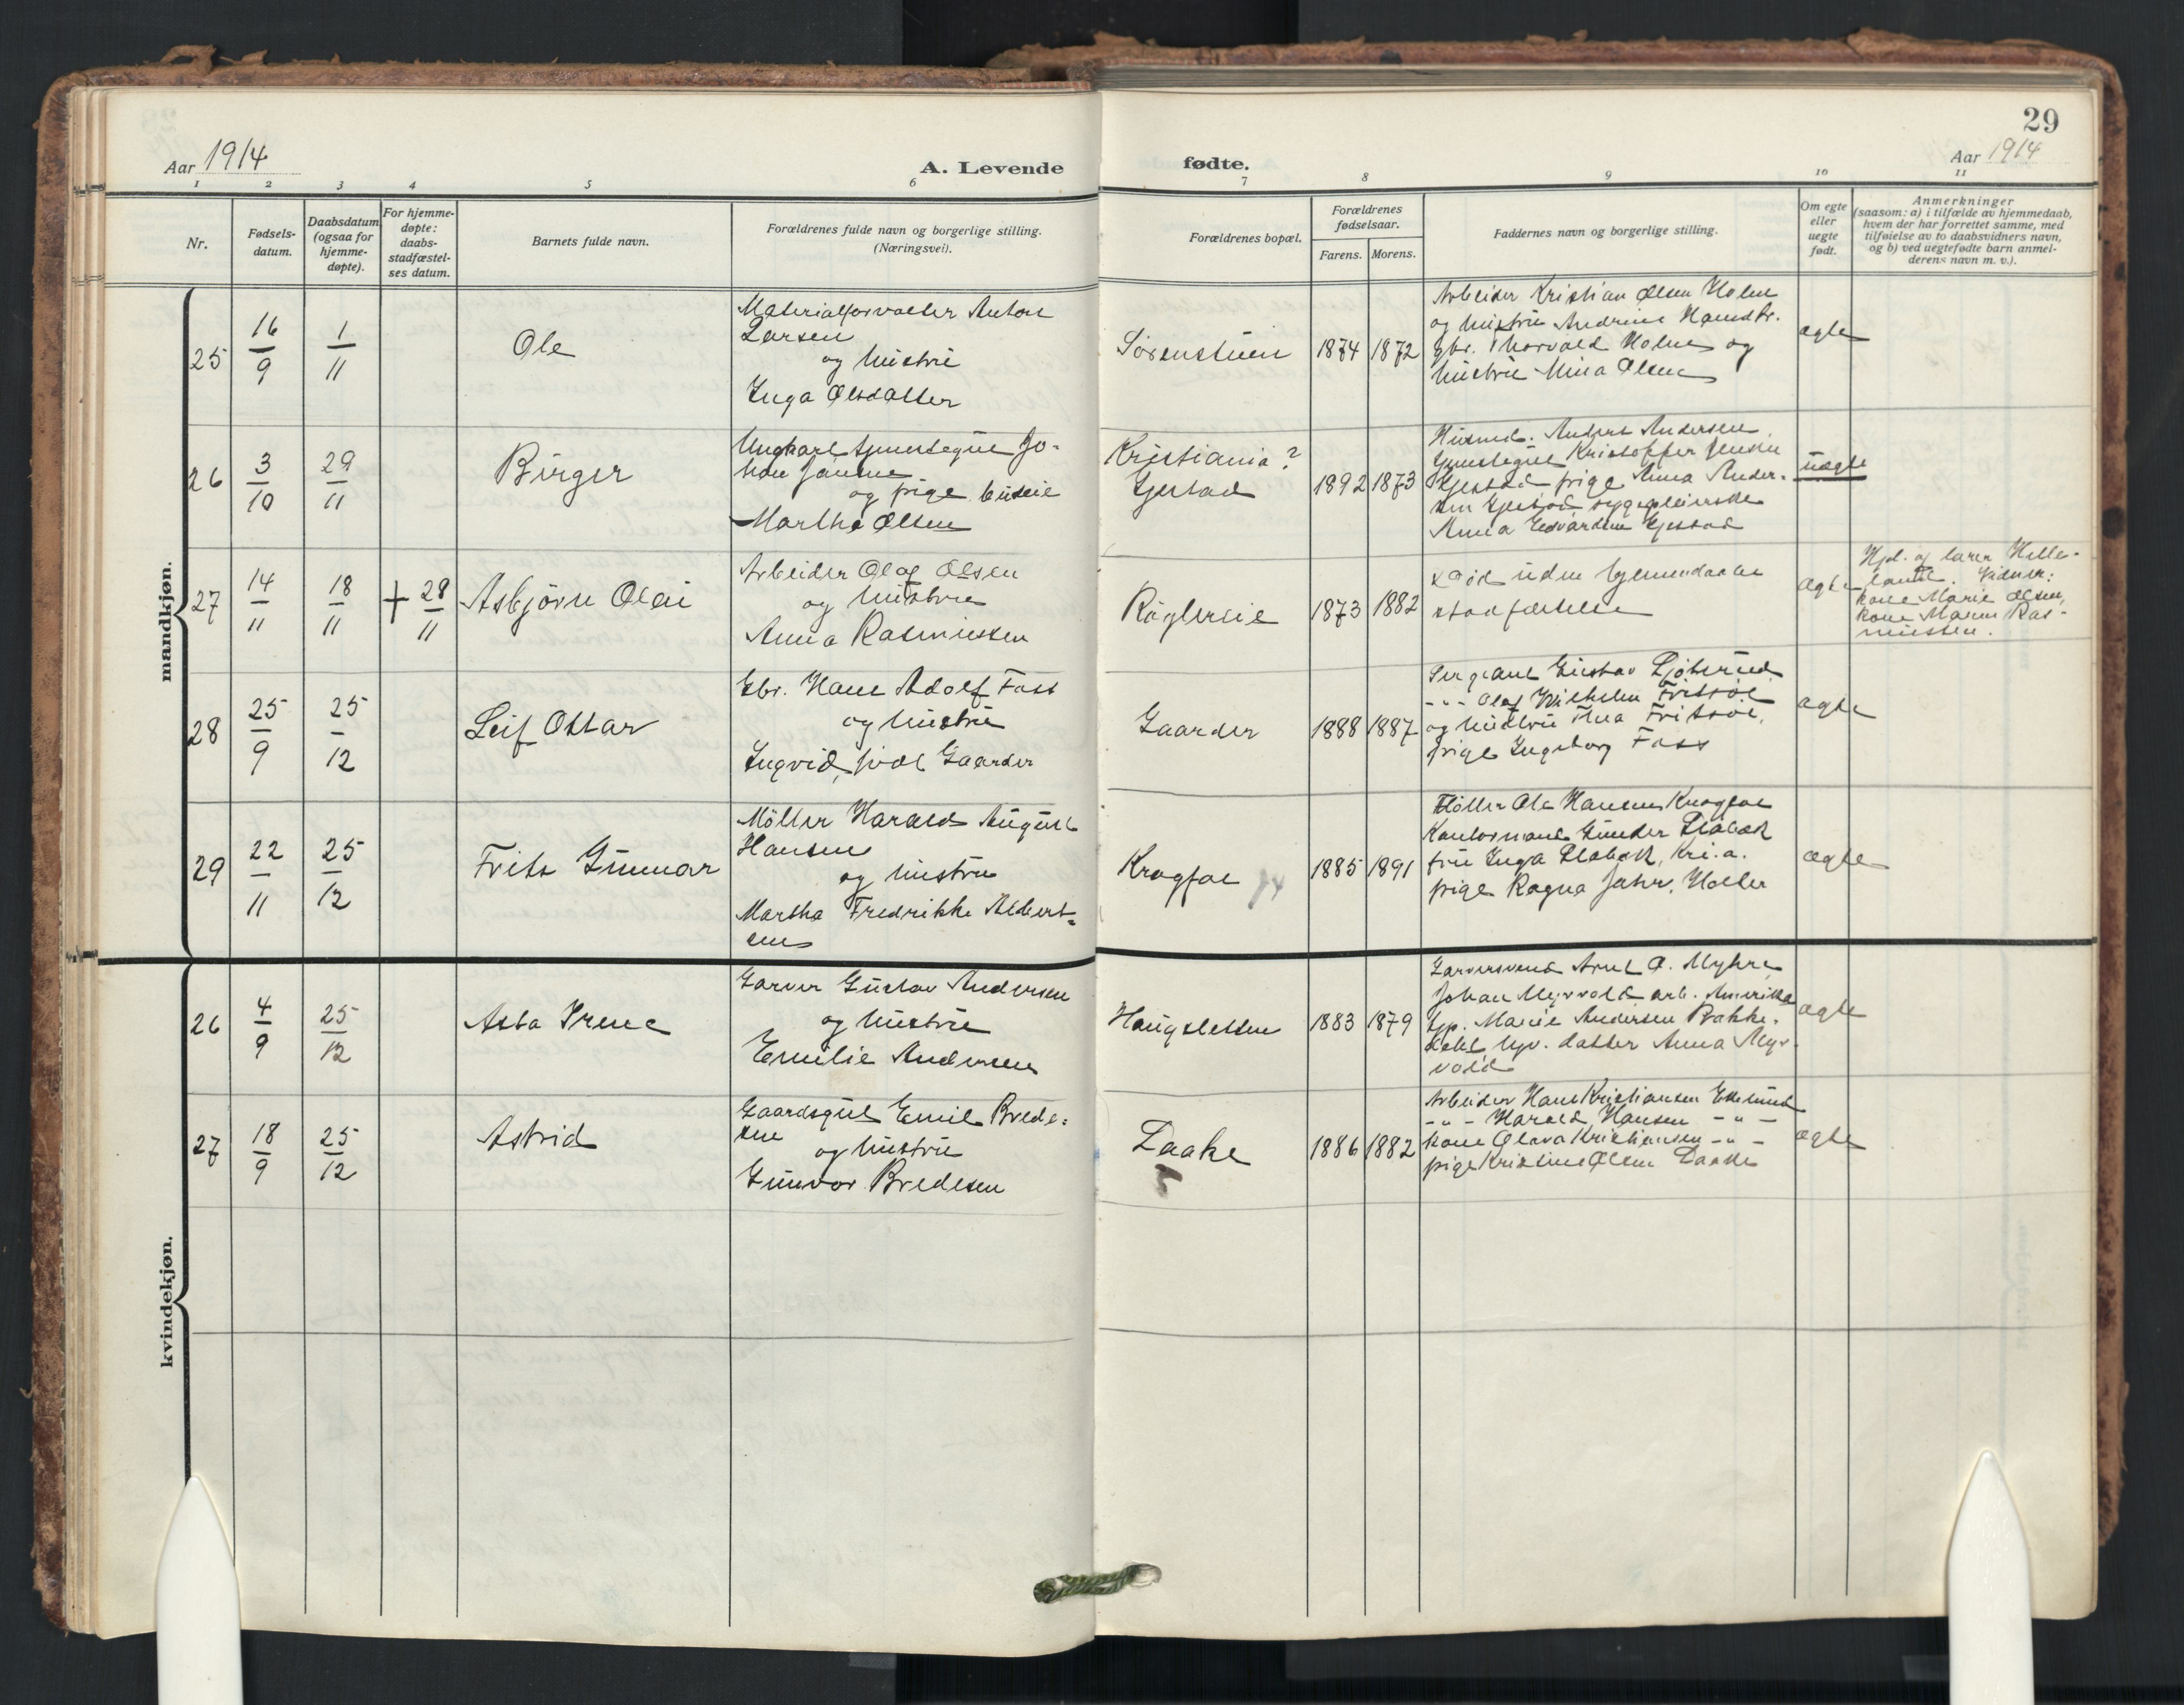 29
Aar 1914
A. Levende
fødte.
Aar 1914
1 2 3 4 5 6 7 8 9 10 11
Nr.
Fødsels-
datum.
Daabsdatum
(ogsaa for
hjemme-
døpte).
For hjemme-
døpte:
daabs-
stadfæstel-
ses datum.
Barnets fulde navn.
Forældrenes fulde navn og borgerlige stilling.
(Næringsvei).
Forældrenes bopæl.
Forældrenes
fødselsaar.
Farens. Morens.
Faddernes navn og borgerlige stilling.
Om egte
eller
uegte
født.
Anmerkninger
(saasom: a) i tilfælde av hjemmedaab,
hvem der har forrettet samme, med
tilføielse av to daabsvidners navn,
og b) ved uegtefødte barn anmel-
derens navn m. v.).
mandkjøn.
25
16/9
1/11
Ole
Materialforvalter Anton
Larsen
og hustru
Inga Olsdatter
1874 1872
Arbeider Kristian Olsen Holm
og hustru Andrine
Gbr. Thorvald Holm og
hustru Mina Olsen
egte
26
3/10
29/11
Birger
Ungkarl tjenestegut Jo-
han Jansen
og pige
Martha Olsen
Kristiania?
Gjestad
1892 1873
Husmd. Anders Andersen
Kristoffer Jensen
Gjestad pige Anna Ander-
sen Gjestad sygepleierske
Anna Edvardsen Gjestad
uegte
27
14/11
18/11
+ 28/11
Asbjørn Olai
Arbeider Olaf Olsen
og hustru
Anna Rasmussen
Røglereie
1873 1882
Død uden hjemmedaabs
stadfæstelse
egte
Hjd. af lærer Helle-
land. Vidner:
kone Marie Olsen,
kone Maren Ras-
mussen.
28
25/9
25/12
Leif Ottar
Gbr. Hans Adolf Foss
og hustru
Ingrid, Gaarder
Gaarder
1888 1887
Sergeant Gustav
-"- Olaf Wilhelm Fritsøe
og hustru Thea Fritsøe,
pige Ingeborg Foss
egte
29
22/11
25/12
Frits Gunnar
Møller Harald August
Hansen
og hustru
Martha Fredrikke Albert-
sen
Krogfos
1885 1891
Møller Ole Hansen Krogfos
Kontormand Gunder
fru Inga Kri.a.
pige Ragna Jahr, Holter
egte
kvindekjøn.
26
4/9
25/12
Asta Irene
Garver Gustav Andersen
og hustru
Emilie Andersen
Haugsletten
1883 1879
Garversvend Arnt O. Myhre
Johan Myrvold arb. Amerika
Marie Andersen Bakke-
datter Anna Myr-
vold
egte
27
18/9
25/12
Astrid
Gaardsgut Emil Brede-
sen
og hustru
Gunvor Bredesen
Laake
1886 1882
Arbeider Hans Kristiansen
-"- Harald Hansen -"-
kone Olava Kristiansen -"-
pige Kristine Olsen Laake
egte